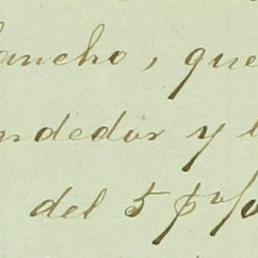 ancho, que
ndedor y l
del 5 p%